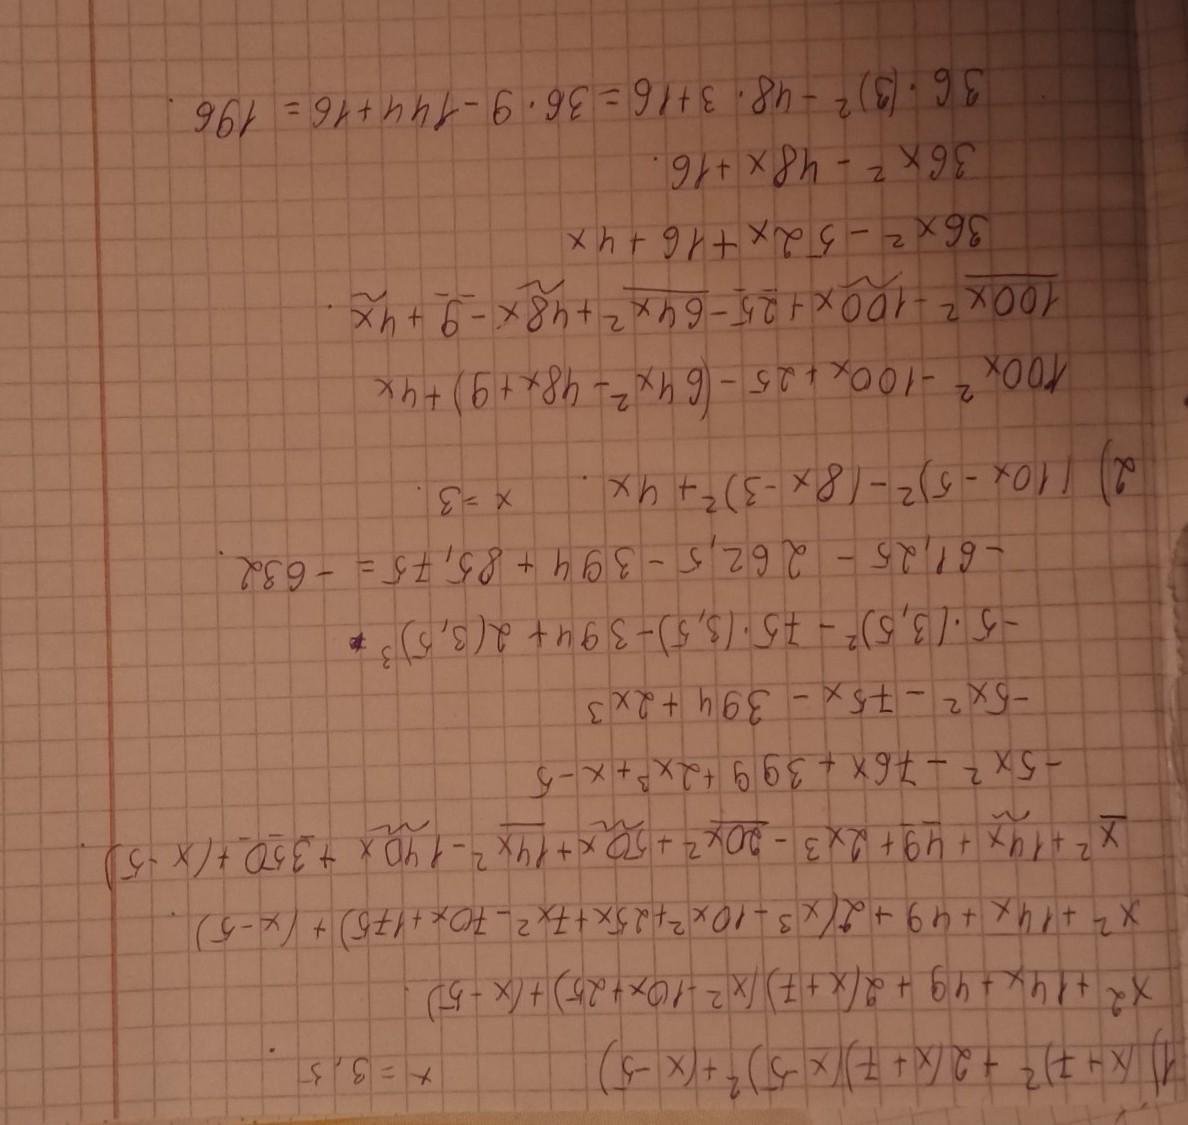 1) (x+7)² + 2(x+7)(x-5)² + (x-5)    x = 3,5
x² + 14x + 49 + 2(x+7)(x² - 10x + 25) + (x-5)
x² + 14x + 49 + 2(x³ - 10x² + 25x + 7x² - 70x + 175) + (x-5)
x² + 14x + 49 + 2x³ - 20x² + 50x + 14x² - 140x + 350 + (x-5)
-5x² - 76x + 399 + 2x³ + x - 5
-5x² - 75x - 394 + 2x³
-5·(3,5)² - 75·(3,5) - 394 + 2(3,5)³
-61,25 - 262,5 - 394 + 85,75 = -632
2) (10x - 5)² - (8x - 3)² + 4x    x = 3
100x² - 100x + 25 - (64x² - 48x + 9) + 4x
100x² - 100x + 25 - 64x² + 48x - 9 + 4x
36x² - 52x + 16 + 4x
36x² - 48x + 16
36·(3)² - 48·3 + 16 = 36·9 - 144 + 16 = 196